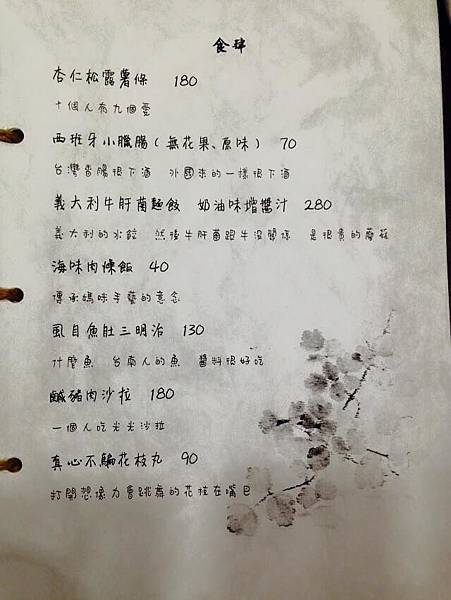 食肆
杏仁松露薯條 180
十個人有九個愛
西班牙小臘腸(無花果、原味) 70
台灣香腸很下酒 外國來的一樣很下酒
義大利牛肝菌麵餃 奶油味噌醬汁 280
義大利的水餃 然後牛肝菌跟牛沒關係 是很貴的蘑菇
海味肉燥飯 40
傳承媽咪手藝的意念
虱目魚肚三明治 130
什麼魚 台南人的魚 醬料很好吃
鹹豬肉沙拉 180
一個人吃光光沙拉
真心不騙花枝丸 90
打開想像力會跳舞的花枝在嘴巴